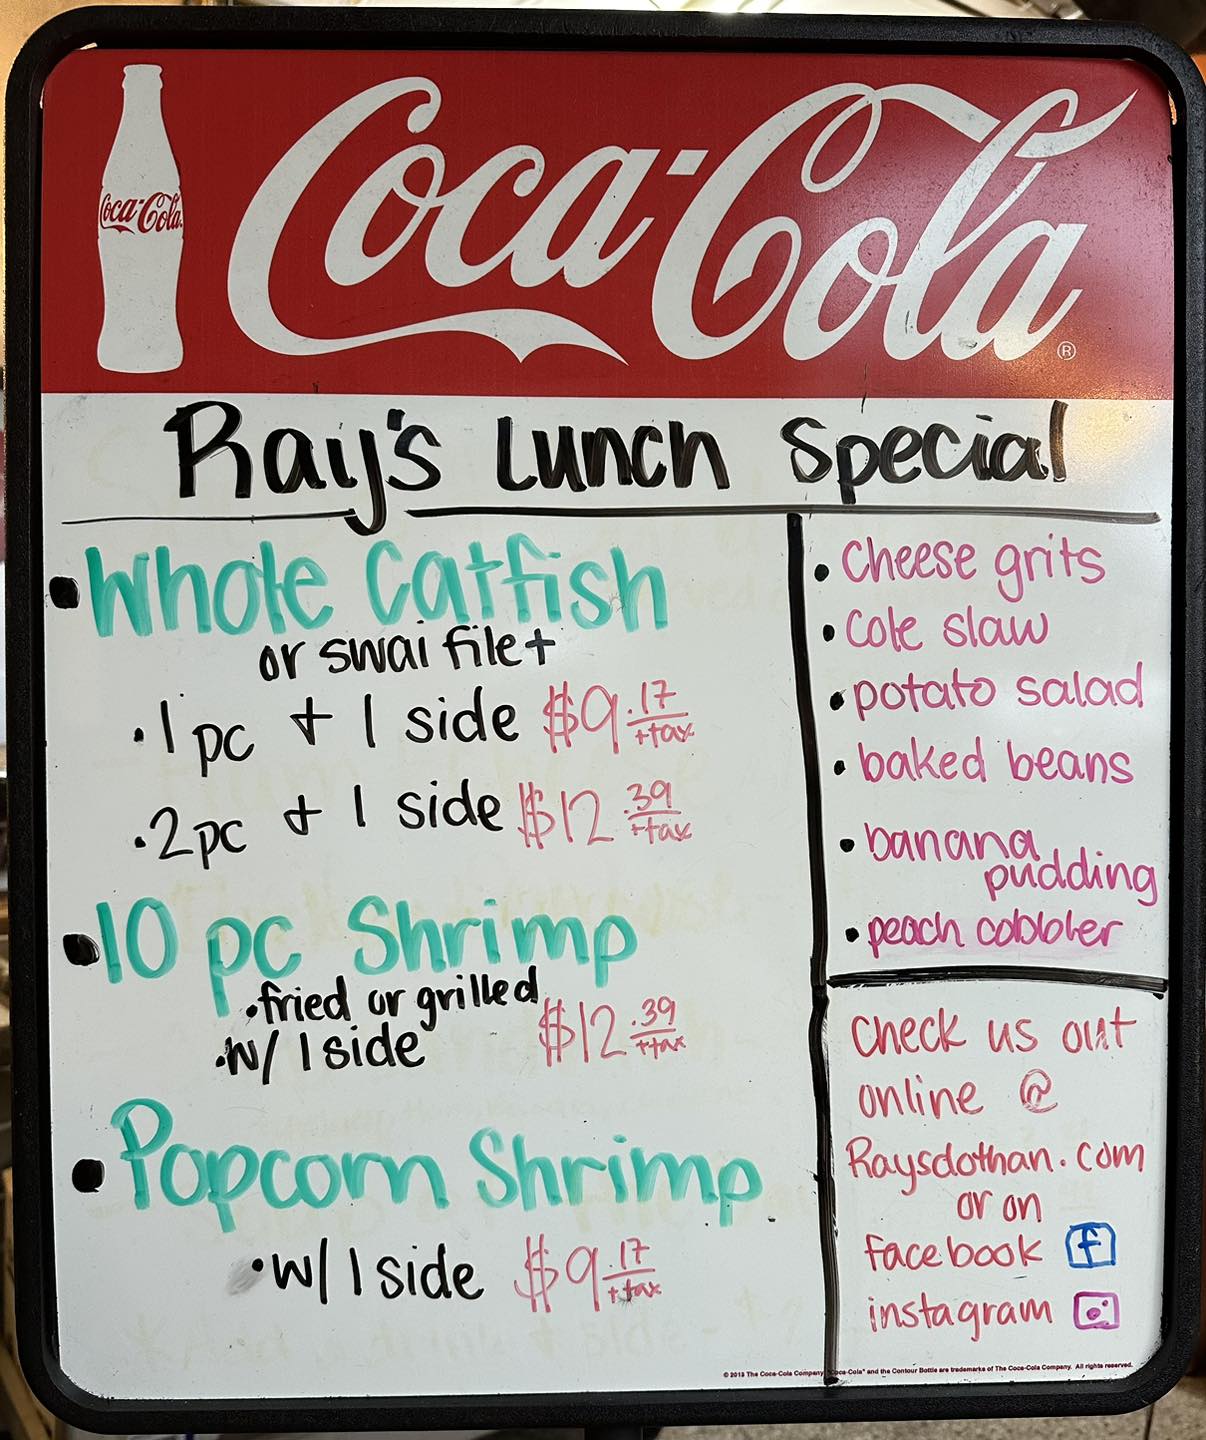 Coca-Cola
Coca-Cola®
Ray's Lunch Special
• Whole Catfish
or swai filet
• 1 pc + 1 side $9.17 + tax
• 2 pc + 1 side $12.39 + tax
• 10 pc Shrimp
• fried or grilled
• w/ 1 side $12.39 + tax
• Popcorn Shrimp
• w/ 1 side $9.17 + tax
• Cheese grits
• Cole slaw
• potato salad
• baked beans
• banana
pudding
• peach cobbler
Check us out
online @
Raysdothan.com
or on
facebook f
instagram
© 2013 The Coca-Cola Company. "Coca-Cola" and the Contour Bottle are trademarks of The Coca-Cola Company. All rights reserved.